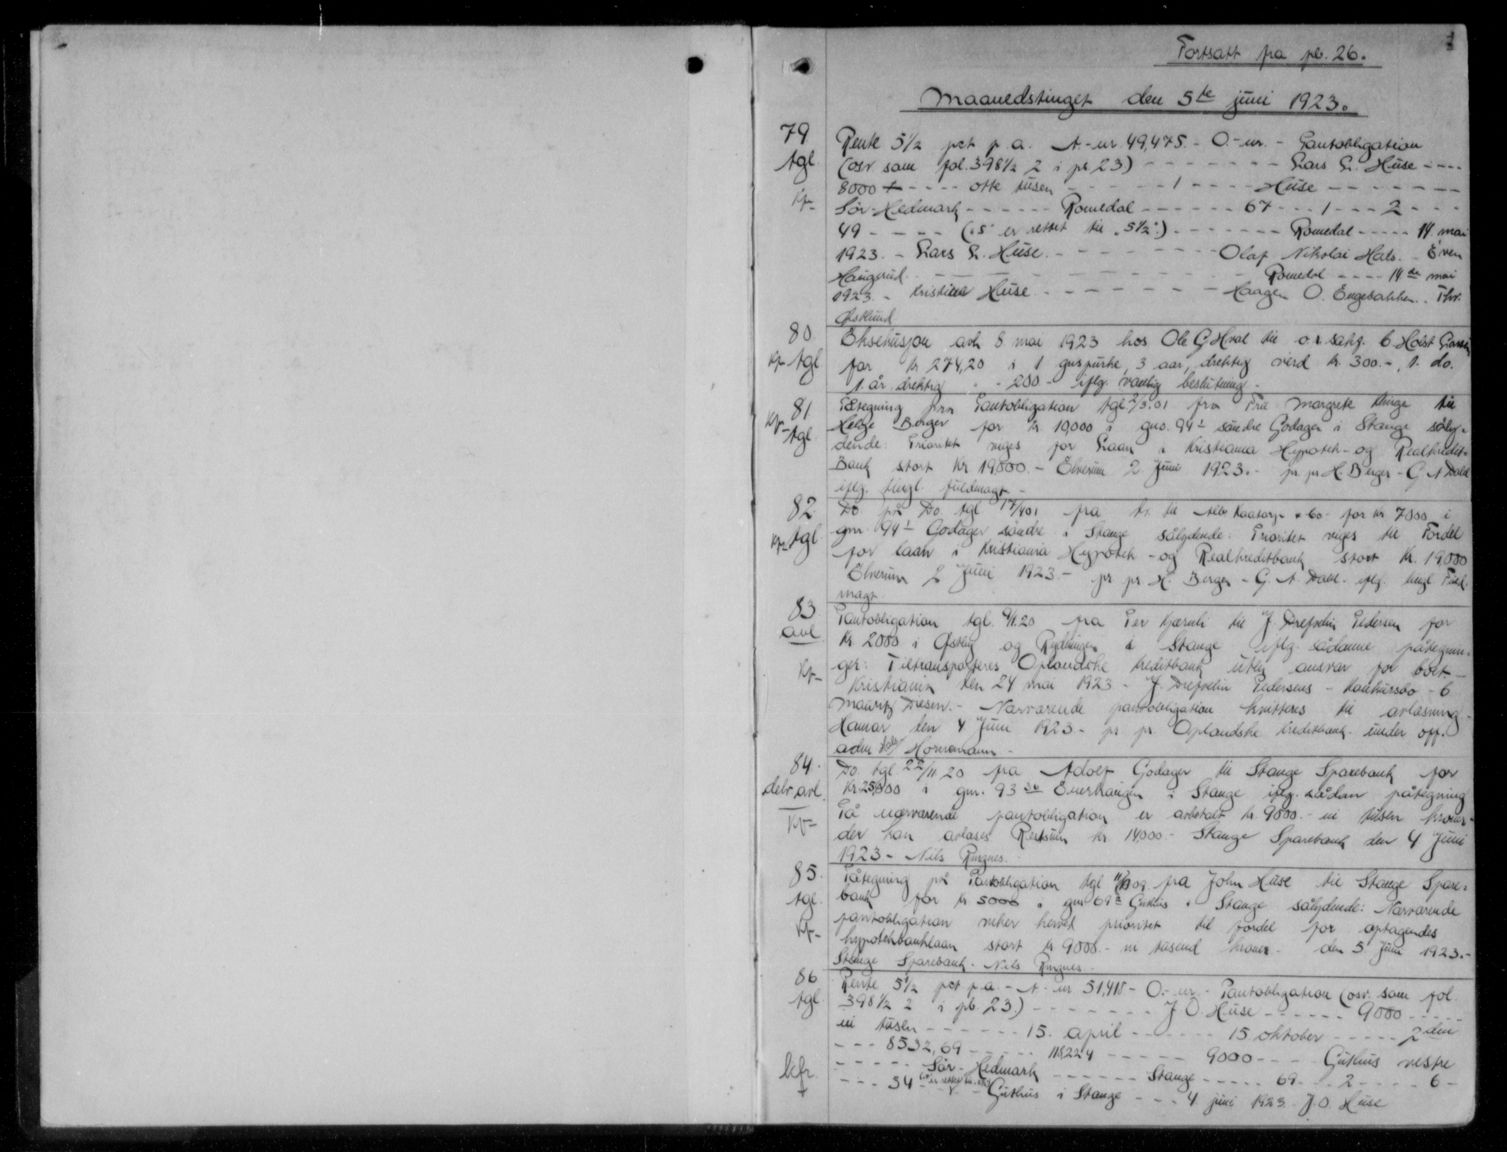 Fortsatt fra pb. 26.
Maanedstinget den 5te juni 1923.
79 Rente 5½ pct p.a. A-nr. 49,475 - O.-nr. - Pantobligation
tgl. (osv som fol. 398½ 2 i pb 23) - - - Lars L. Huse - - -
8000 - - - otte tusen - - - 1 - - - Huse - - -
Kfr Sør-Hedmark - - - Romedal - - - 67 - - 1 - - 2 - - -
49 - - - ("5" er rettet til "5½") - - - Romedal - - - 14 mai
1923. - Lars L. Huse. - - - Olaf Nikolai Hals. - Even
Haugerud. - - - Romedal - - - 14de mai
1923 - Kristine Huse - - - Haagen O. Engebakken. Thv.
Østlund
80 Eksekusjon avh 8 mai 1923 hos Ole G Hval til o.r.sakf. C. Holst
Kfr tgl for kr 274,20 i 1 guspurke, 3 aar, drektig verd kr. 300.-, 1 do.
1 år drektig - - 200 - iflg. vanlig beslutning -
81 Paategning paa Pantobligation tgl 2/3.01 fra Frü Margrete til
Kfr tgl Helge Berger for kr 10,000 i gno. 94 søndre Godager i Stange sålydende:
Prioritet viges for Laan i Kristiania Hypotek- og Realkredit-
Bank stort kr 19000.- Elverum 2 Juni 1923.- pr. pr. H Berger - G A Dahl
iflg. tingl. fuldmagt -
82 Do på Do. tgl 17/4 01 fra til for kr 7000 i
Kfr tgl gnr. 94 Godager søndre i Stange sålydende: Prioritet viges til Fordel
for laan i Kristiania Hypotek- og Realkreditbank stort kr. 19,000
Elverum 2 Juni 1923.- pr pr H. Berger - G. A. Dahl. iflg. tingl. Fuld-
magt.
83 Pantobligation tgl. 9/11.20 fra Per Kjærnli til J. Pedersen for
avl. kr 2000 i Østby og i Stange iflg. sådanne påtegnin-
Kfr ger: Tiltransporteres Oplandske Kreditbank uten ansvar for bort-
Kristiania den 24 mai 1923 - J. Pedersens - konkursbo - C
Mauritz - Nærværende pantobligation kvitteres til avlæsning.
Hamar den 4 Juni 1923 - pr pr. Oplandske Kreditbank under off.
adm Hornemann -
84 Do. tgl. 22/11 20 fra Adolf Godager til Stange Sparebank for
delv. avl. kr 23,000 i gnr. 93 Enerhaugen i Stange iflg. sådan påtegning
Kfr På nærværende pantobligation er avbetalt kr. 9000.- ni tusen kroner
der kan avlæses Restsum kr 14,000 - Stange Sparebank den 4 Juni
1923 - Nils Ringnes.
85 Påtegning på Pantobligation tgl 09 fra John Huse til Stange Spare-
tgl. bank for kr 5000 i gnr 69 Guthus i Stange sålydende: Nærværende
Kfr pantobligation viker herved prioritet til fordel for optagendes
hypotekbanklaan stort kr 9000.- ni tusend kroner. den 5 Juni 1923.-
Stange Sparebank. Nils Ringnes.
86 Rente 5½ pct p.a. - A-nr 51,418 - O.-nr - Pantobligation (osv. som fol.
tgl 398½ 2 i pb. 23) - - - J O. Huse - - - 9000 - - -
ni tusen - - - 15. april - - - 15 oktober - - - 2den
- - - 8532,69 - - - 118224 - - - 9000 - - - Guthus vestre
kfr. - - - Sør-Hedmark - - - Stange - - - 69 - - 2 - - - 6 -
- - - 34 - - - Guthus i Stange - - - 4 juni 1923. J.O. Huse